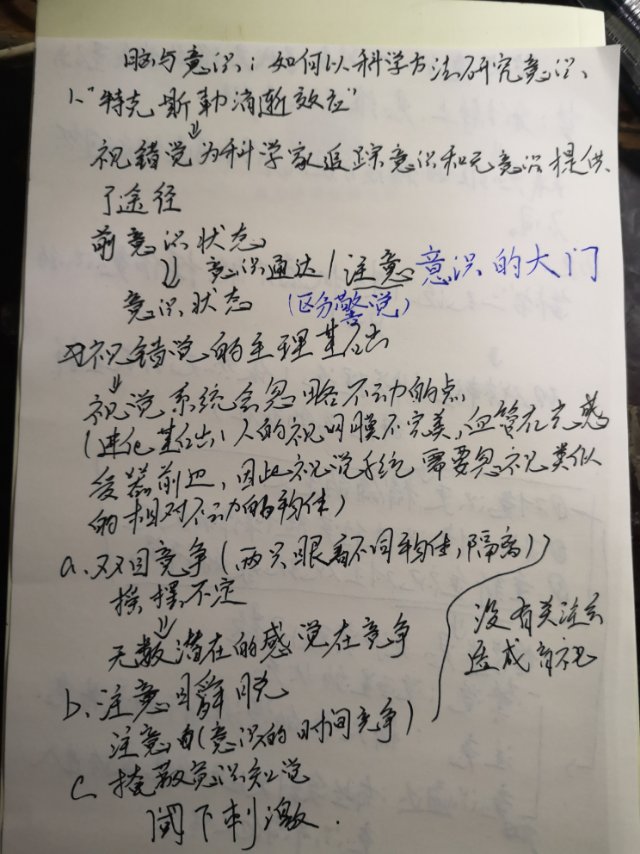 脑与意识：如何以科学方法研究意识、
1、"特克斯勒消逝效应"
⇓
视错觉为科学家追踪意识和无意识提供
了途径
前意识状态
⇓ 意识通达/注意 意识的大门
意识状态 (区分警觉)
视错觉的生理基础
↓
视觉系统会忽略不动的点，
(进化基础：人的视网膜不完美，血管在光感
受器前边，因此视觉系统需要忽视类似
的相对不动的物体)
a、双目竞争(两只眼看不同物体，隔离)
摇摆不定
⇓
无数潜在的感觉在竞争
没有关注会
造成盲视
b、注意瞬脱
注意 (意识的时间竞争)
c、掩蔽意识知觉
阈下刺激.